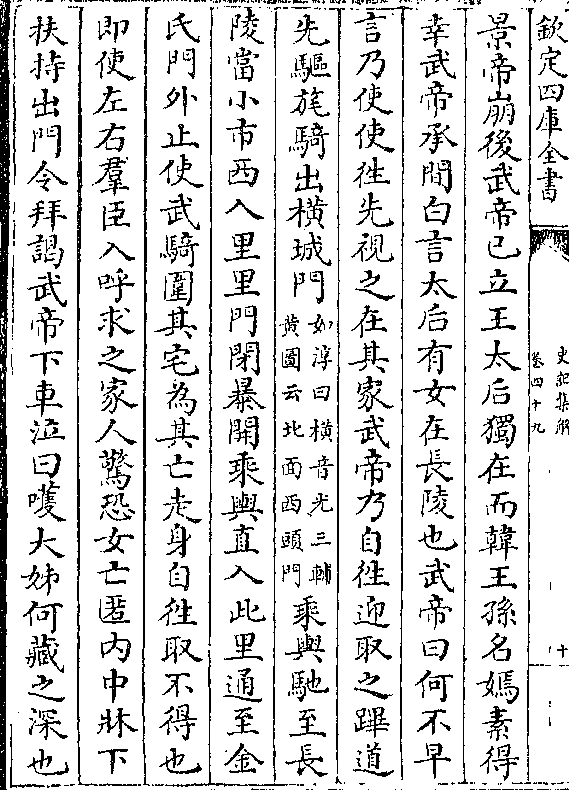 欽定四庫全書
史記集解
卷四十九
十
景帝崩後武帝已立王太后獨在而韓王孫名嫣素得
幸武帝承間白言太后有女在長陵也武帝曰何不早
言乃使使徃先視之在其家武帝乃自徃迎取之蹕道
先驅旄騎出横城門
如淳曰横音光三輔
黄圖云北面西頭門
乘輿馳至長
陵當小市西入里里門閉暴開乘輿直入此里通至金
氏門外止使武騎圍其宅為其亡走身自徃取不得也
即使左右羣臣入呼求之家人驚恐女亡匿内中牀下
扶持出門令拜謁武帝下車泣曰嚄大姊何藏之深也